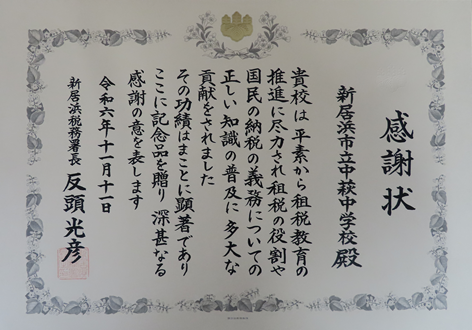 感謝状
新居浜市立中萩中学校殿
貴校は平素から租税教育の
推進に尽力され租税の役割や
国民の納税の義務についての
正しい知識の普及に多大な
貢献をされました
その功績はまことに顕著であり
ここに記念品を贈り深甚なる
感謝の意を表します
令和六年十一月十一日
新居浜税務署長 反頭光彦